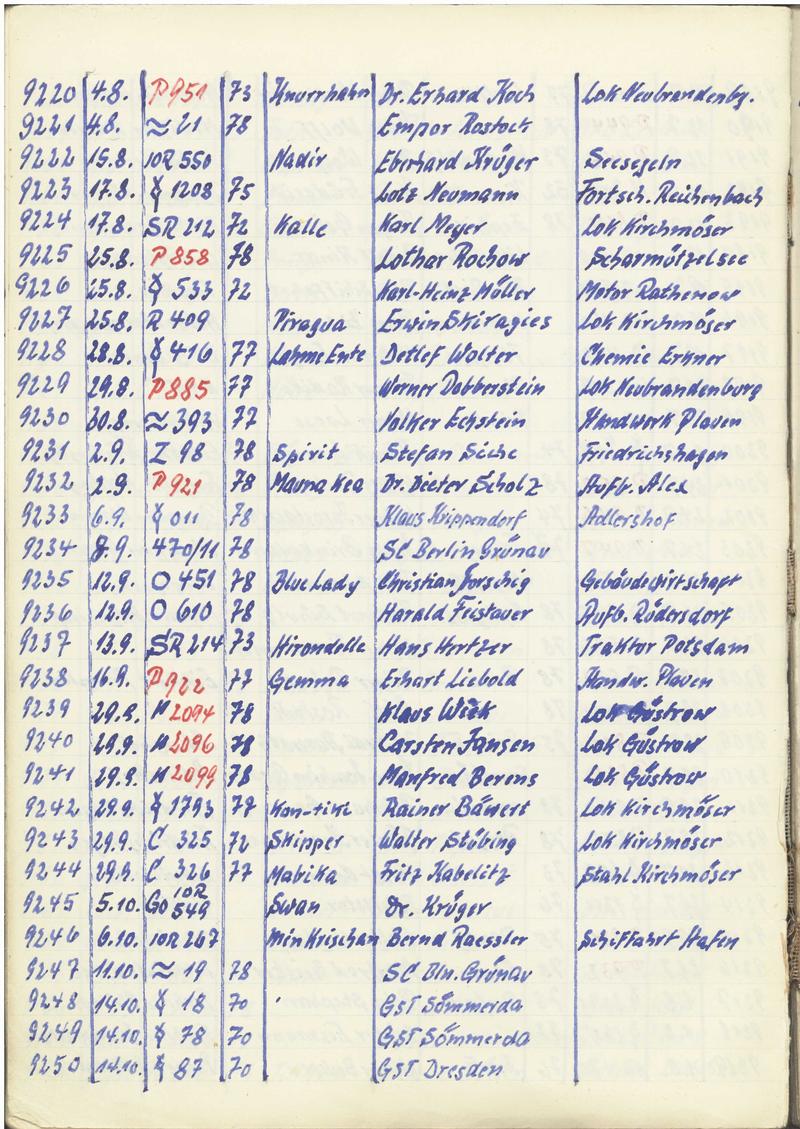 9220 4.8. P951 73 Knurrhahn Dr. Erhard Koch Lok Neubrandenbg.
9221 4.8. ≈ 21 78 Empor Rostock
9222 15.8. 10R 550 Nadir Eberhard Krüger Seesegeln
9223 17.8. 1208 75 Lotz Neumann Fortsch. Reichenbach
9224 17.8. SR 212 72 Kalle Karl Meyer Lok Kirchmöser
9225 25.8. P 858 78 Lothar Rochow Scharmützelsee
9226 25.8. 533 72 Karl-Heinz Müller Motor Rathenow
9227 25.8. R 409 Piragua Erwin Skiragies Lok Kirchmöser
9228 28.8. 416 77 Lahme Ente Detlef Wolter Chemie Erkner
9229 29.8. P 885 77 Werner Dobberstein Lok Neubrandenburg
9230 30.8. ≈ 393 77 Volker Eckstein Handwerk Plauen
9231 2.9. Z 98 78 Spirit Stefan Siche Friedrichshagen
9232 2.9. P 921 78 Mauna Kea Dr. Dieter Scholz Aufb. Alex
9233 6.9. 011 78 Klaus Krippendorf Adlershof
9234 8.9. 470/11 78 SC Berlin Grünau
9235 12.9. O 451 78 Blue Lady Christian Gebäudewirtschaft
9236 12.9. O 610 78 Harald Feistauer Aufb. Rüdersdorf
9237 13.9. SR 214 73 Hirondelle Hans Hertzer Traktor Potsdam
9238 16.9. P 922 77 Gemma Erhart Liebold Handw. Plauen
9239 29.8. M 2094 78 Klaus Wiek Lok Güstrow
9240 29.9. M 2096 78 Carsten Jansen Lok Güstrow
9241 29.9. M 2099 78 Manfred Berens Lok Güstrow
9242 29.9. 1793 77 Kon-tiki Rainer Bänert Lok Kirchmöser
9243 29.9. C 325 72 Skipper Walter Stübing Lok Kirchmöser
9244 29.9. C 326 77 Mabika Fritz Kabelitz Stahl Kirchmöser
9245 5.10. Go 10R 549 Swan Dr. Krüger
9246 6.10. 10R 267 Min Krischan Bernd Raessler Schiffahrt Hafen
9247 11.10. ≈ 19 78 SC Bln. Grünau
9248 14.10. 18 70 GST Sömmerda
9249 14.10. 78 70 GST Sömmerda
9250 14.10. 87 70 GST Dresden